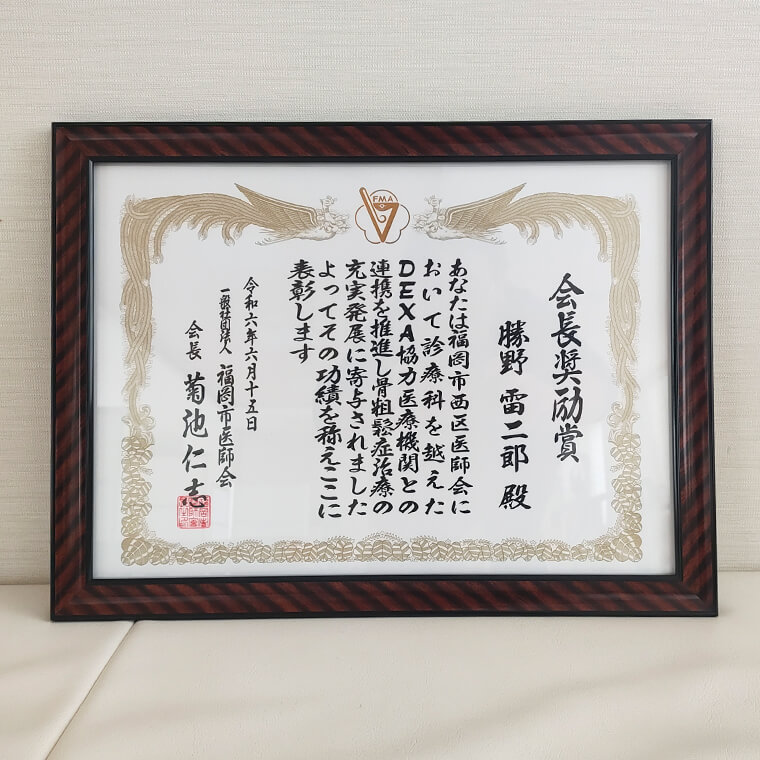 FMA
会長奨励賞
勝野 雷二郎 殿
あなたは福岡市西区医師会に
おいて診療科を越えた
DEXA協力医療機関との
連携を推進し骨粗鬆症治療の
充実発展に寄与されました
よってその功績を称えここに
表彰します
令和六年六月十五日
一般社団法人 福岡市医師会
会長 菊池仁志